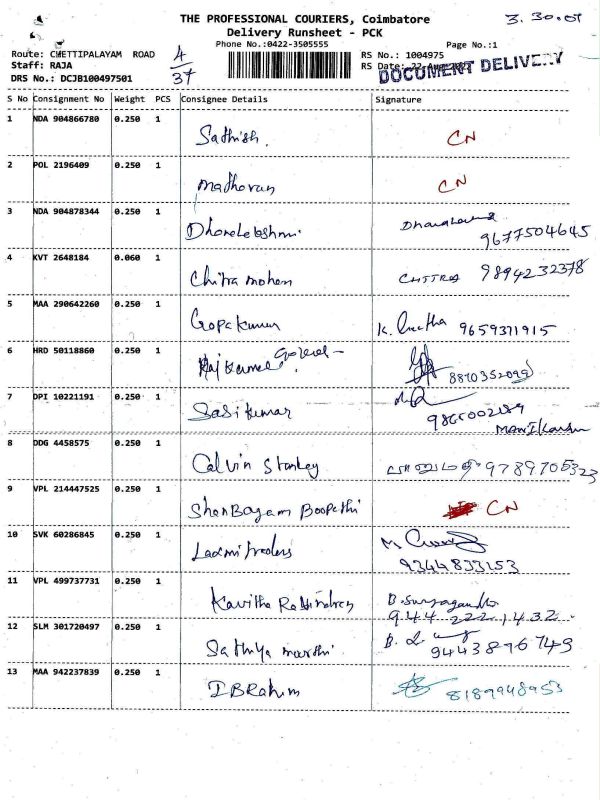 THE PROFESSIONAL COURIERS, Coimbatore
3.30.
Delivery Runsheet - PCK
Phone No.:0422-3505555
Page No.:1
Route: CHETTIPALAYAM ROAD
4/37
RS No.: 1004975
Staff: RAJA
RS Date:
DOCUMENT DELIVERY
DRS No.: DCJB100497501
S No Consignment No Weight PCS Consignee Details Signature
1 NDA 904866780 0.250 1
Sathish. CN
2 POL 2196409 0.250 1
Madhavan CN
3 NDA 904878344 0.250 1
Dhanalakshmi 9677504645
4 KVT 2648184 0.060 1
Chitra mohan CHITRA 9894232378
5 MAA 290642260 0.250 1
Gopakumar K. 9659371915
6 HRD 50118860 0.250 1
Rajkumar 8870352099
7 DPI 10221191 0.250 1
Sasikumar
8 DDG 4458575 0.250 1
Calvin Stanley 9789705323
9 VPL 214447525 0.250 1
Shenbagam Boopathi CN
10 SVK 60286845 0.250 1
Laxmi traders M.
9344833153
11 VPL 499737731 0.250 1
Kavitha B.
944 222 1432
12 SLM 301720497 0.250 1
Sathya moorthi B. 9443896749
13 MAA 942237839 0.250 1
IBRahim 8189948953